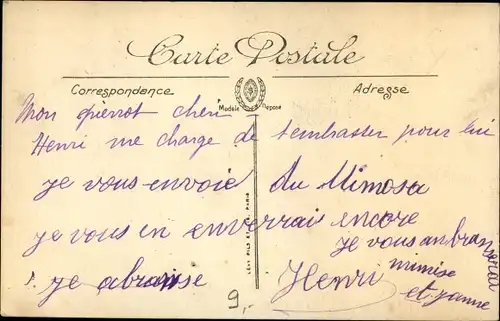 Carte Postale
Correspondance
Adresse
Modèle Déposé
Mon pierrot cheri
Henri me charge de tembrasser pour lui
je vous envoie du Mimosa
je vous en enverrais encore
je vous anbrans
je abranse
Henri
mimise
et janne
LEVY FILS ET Cie, PARIS
9,-